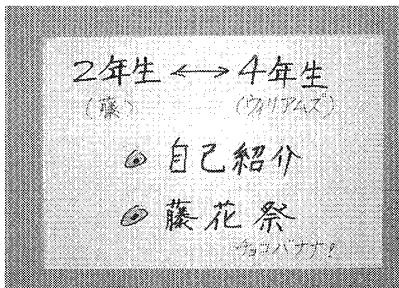 2年生 ↔ 4年生
(藤) (ウィリアムズ)
自己紹介
藤花祭
チョコバナナ!